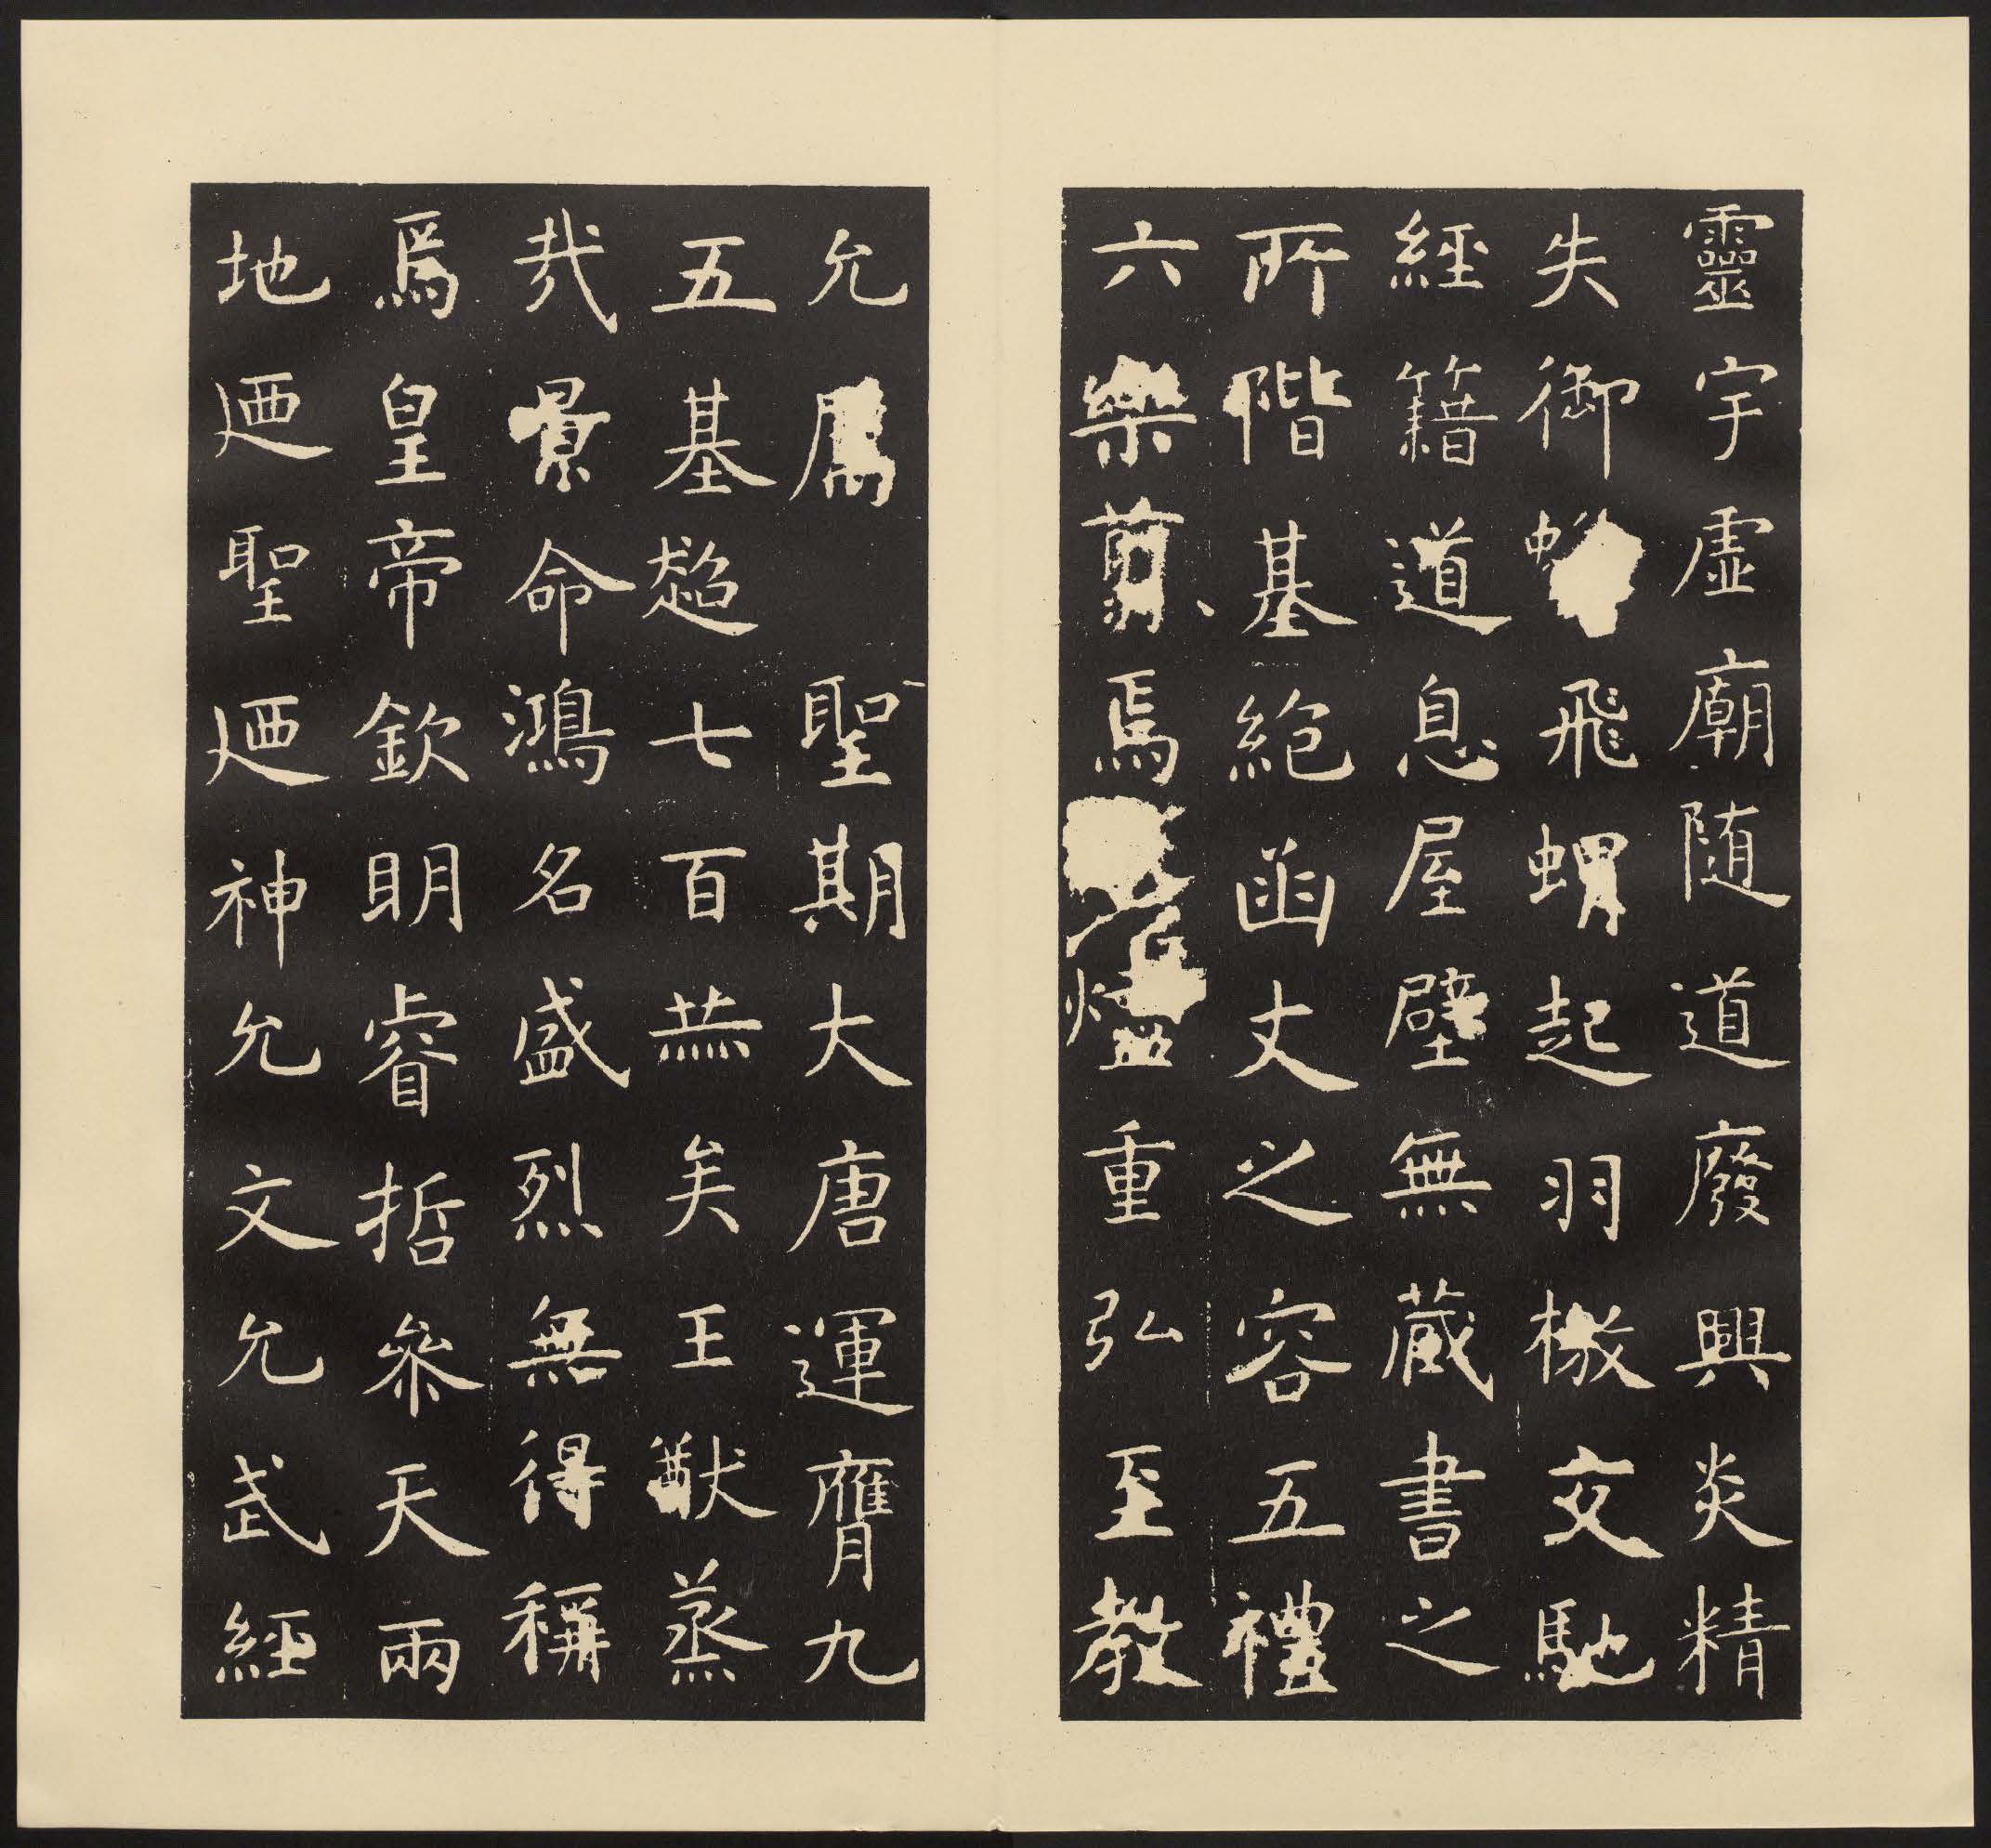 靈宇虛廟隨道廢興炎精
失御蜂飛蝟起羽檄交馳
經籍道息屋壁無藏書之
所階基絕函丈之容五禮
六樂翦焉燼重弘至教
允屬聖期大唐運膺九
五基超七百赫矣王猷蒸
哉景命鴻名盛烈無得稱
焉皇帝欽明睿哲參天兩
地迺聖迺神允文允武經